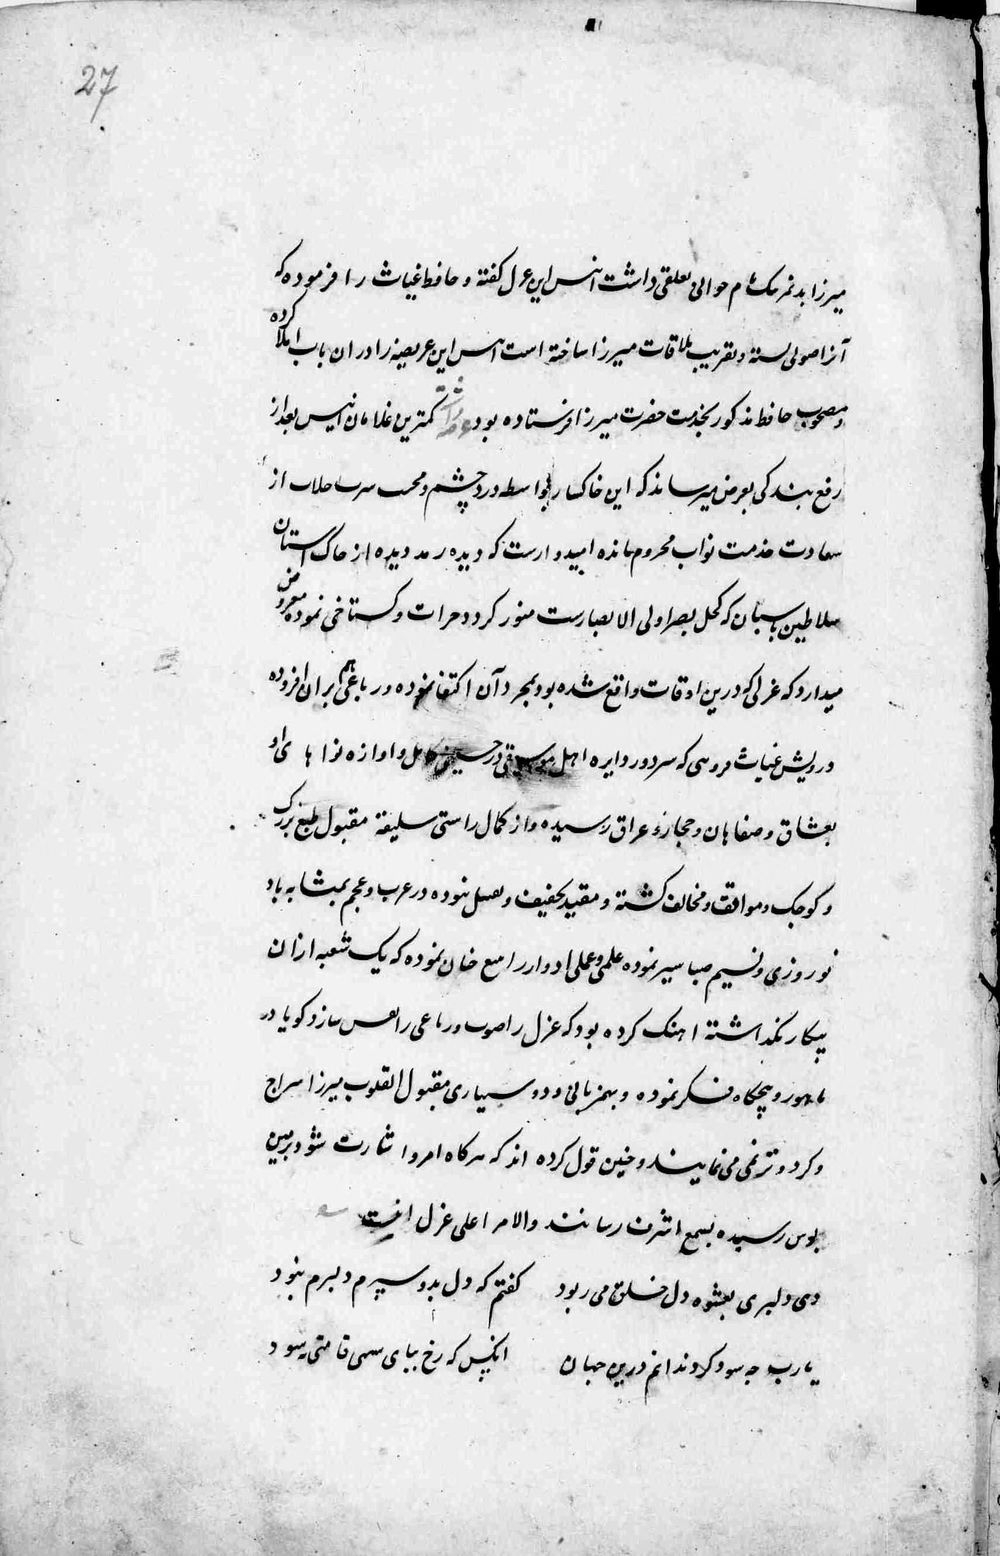 27
میرزا بدنمرمک شام حوالی تعلقی داشت انیس این غزل گفته و حافظ غیاث را فرموده که
آنرا صوتی بسته و بتقریب ملاقات میرزا ساخته است انیس این عریضه را در ان باب املا کرده
و مصحوب حافظ مذکور بخدمت حضرت میرزا فرستاده بود عرضداشت کمترین غلامان انیس بعد از
رفع بندکی بعرض میرساند که این خاکسار بواسطه درد چشم و محب از
سعادت خدمت نواب محروم مانده امیدوارست که دیده رمد دیده از خاک استان
سلاطین پاسبان که کحل بصر اولی الابصارست منور کردد جرات و کستاخی نموده معروض
میدارد که غزلی که درین اوقات واقع شده بود بمجرد آن اکتفا نموده و رباعی هم بران افزوده
درویش غیاث که سر دور دایره اهل موسیقی در حسینی کامل و اوازه نوا های او
بعشاق و صفاهان و حجاز و عراق رسیده و از کمال راستی سلیقه مقبول طبع بزرک
و کوچک و موافق و مخالف کشته و مقید بخفیف و ثقیل نبوده در عرب و عجم بمشابه باد
نوروزی و نسیم صبا سیر نموده علمی و عملی ادوار را خان نموده که یک شعبه ازان
بیکار نکذاشته اهنک کرده بود که غزل را صوت و رباعی را نقش سازد کویا در
ماهور و پنجکاه فکر نموده و بهمزبانی و دوسیاری مقبول القلوب میرزا سراج
و کرد و ترنمی می نمایند و چنین قول کرده اند که هرکاه امر و اشارت شود بزمین
بوس رسیده بسمع اشرف رسانند والامر اعلی غزل اینست
دی دلبری بعشوه دل خلق می ربود کفتم که دل بدو سپرم دلبرم نبود
یارب چه سود کرد ندانم درین جهان انکس که رخ بپای سهی قامتی نسود